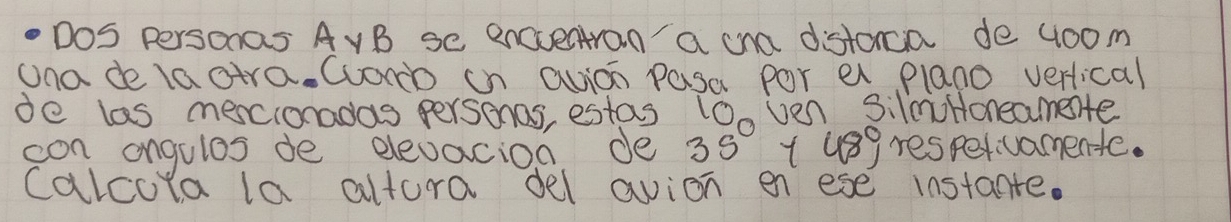 • Dos personas A y B se encuentran a una distancia de 400m
una de la otra. Cuando un avión pasa por el plano vertical
de las mencionadas personas, estas lo ven silmultoneamente
con angulos de elevacion de 35° y 48° respetivamente.
Calcula la altura del avión en ese instante.